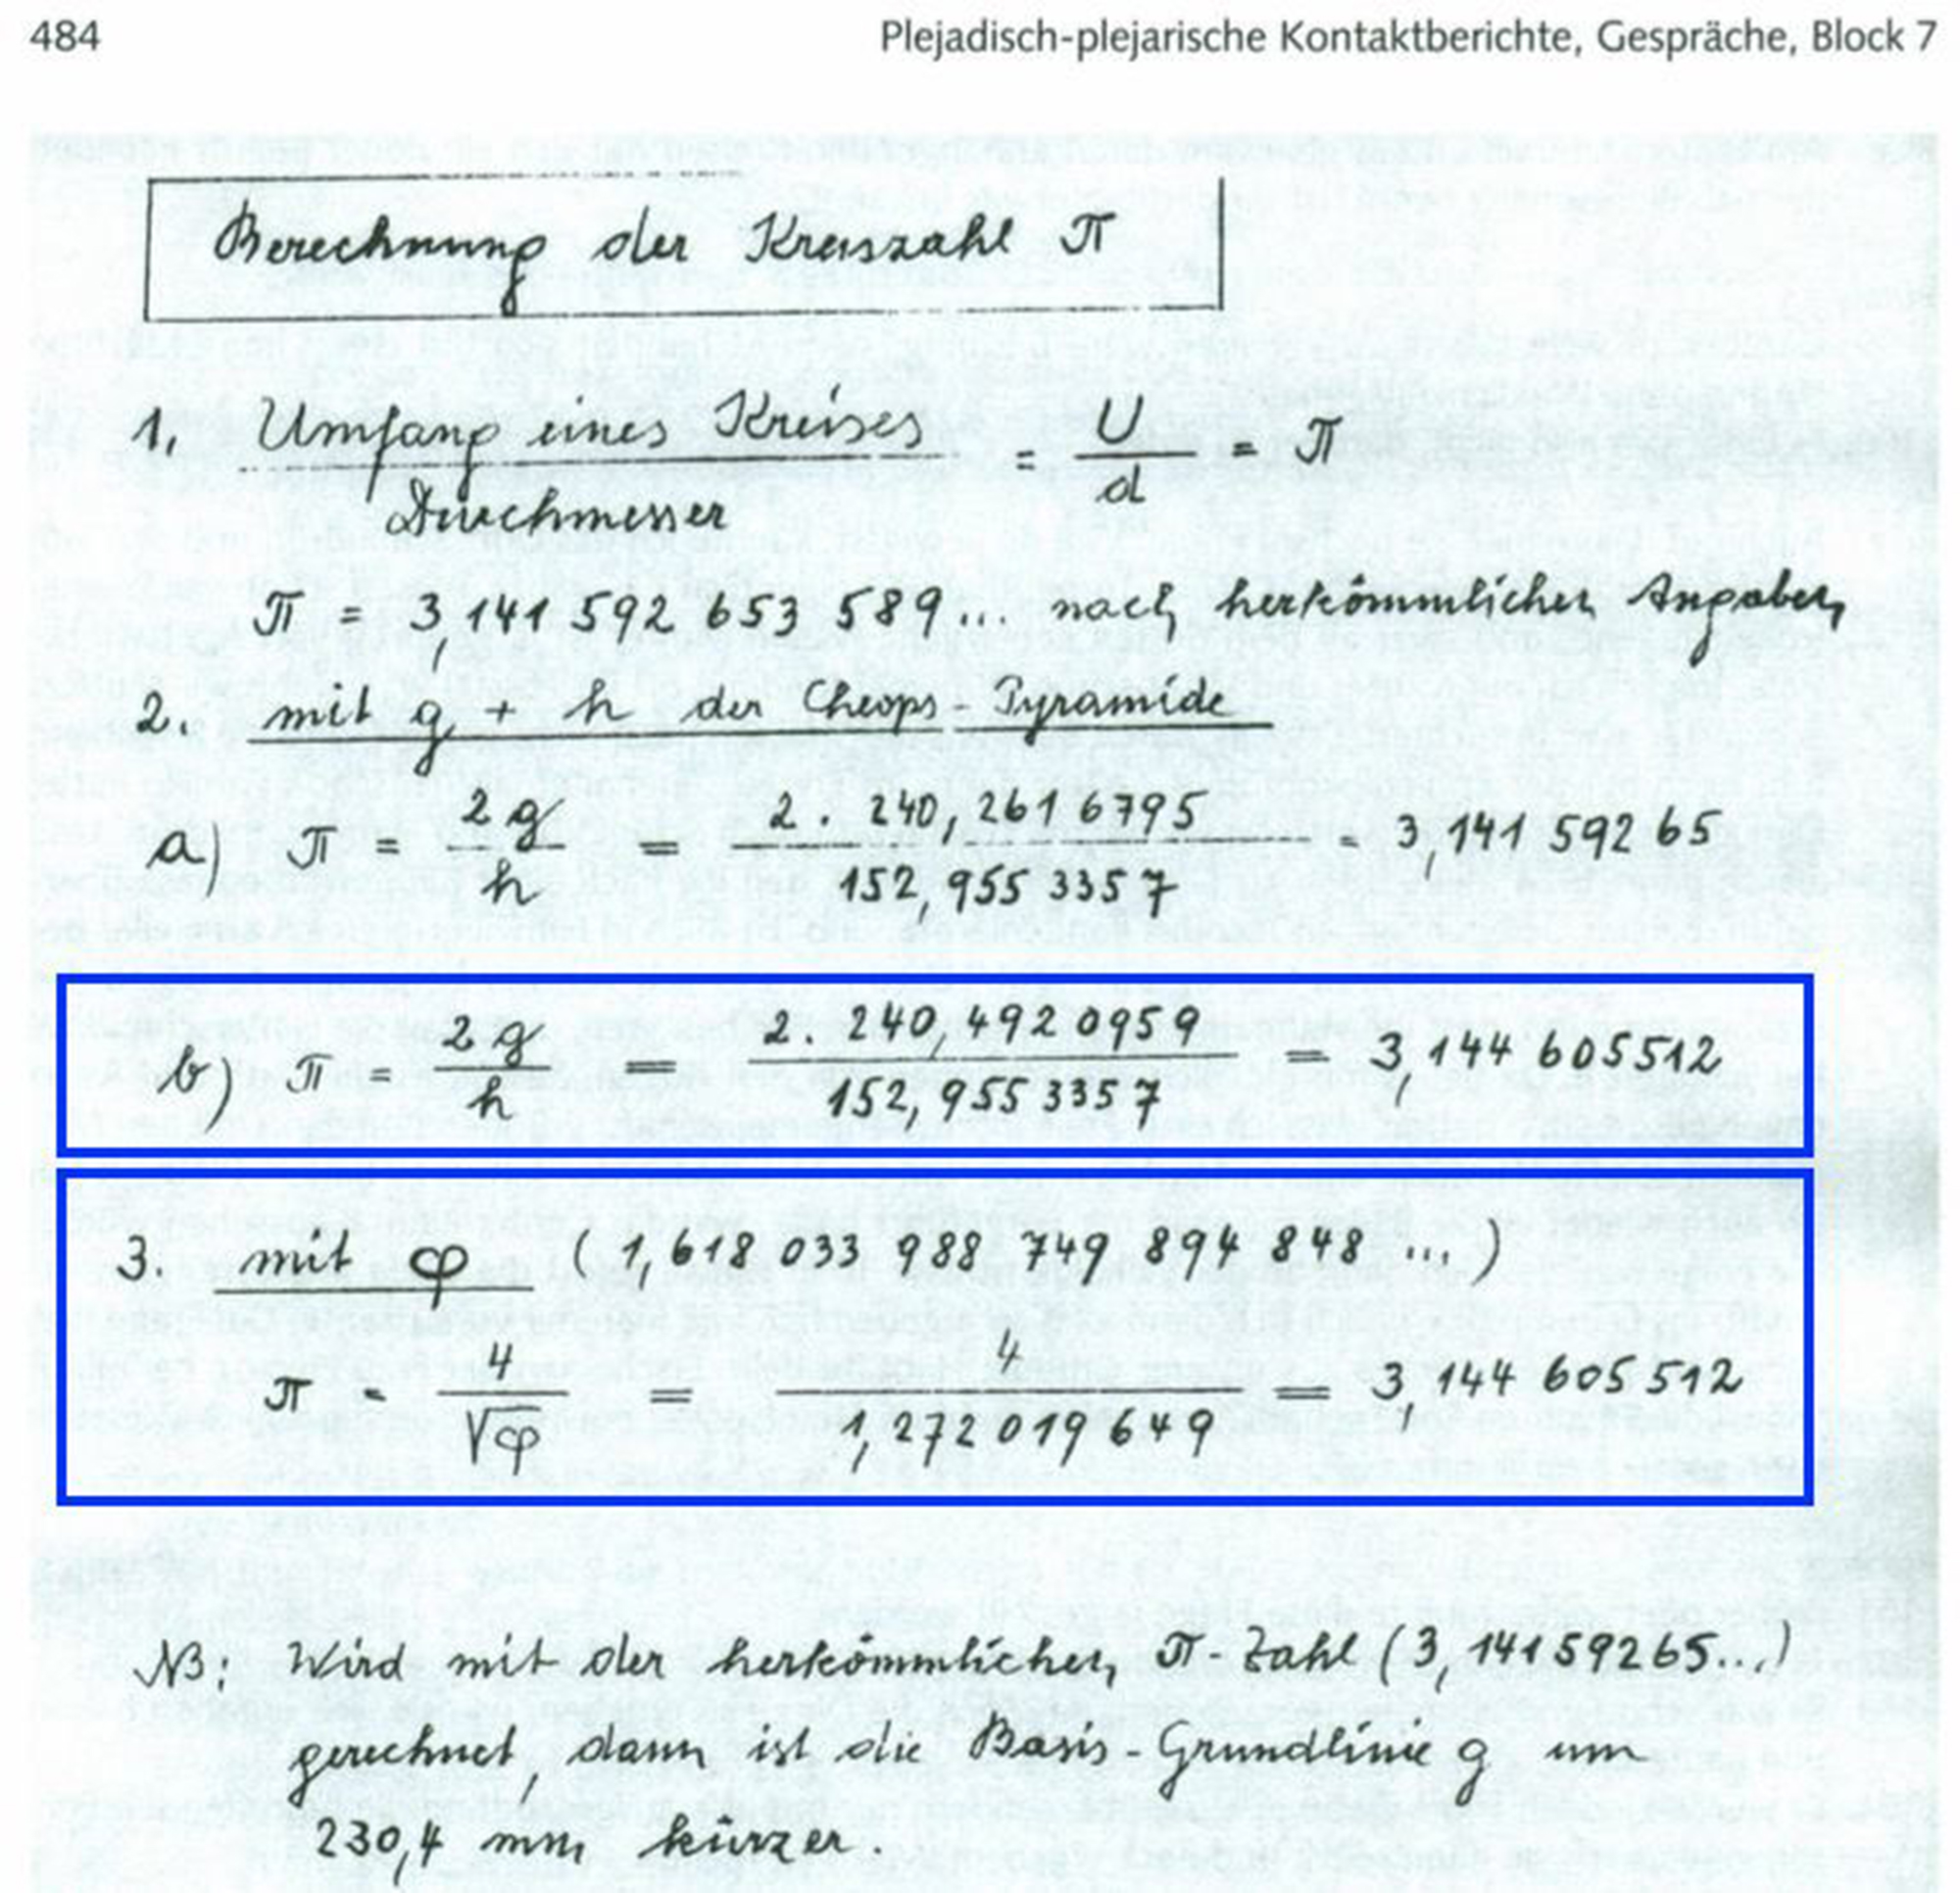 484 Plejadisch-plejarische Kontaktberichte, Gespräche, Block 7
Berechnung der Kreiszahl π
1. Umfang eines Kreises / Durchmesser = U / d = π
π = 3,141 592 653 589... nach herkömmlichen Angaben
2. mit g + h der Cheops-Pyramide
a) π = 2g / h = 2 · 240,261 6795 / 152,955 3357 = 3,141 592 65
b) π = 2g / h = 2 · 240,492 0959 / 152,955 3357 = 3,144 605512
3. mit φ (1,618 033 988 749 894 848 ...)
π = 4 / √φ = 4 / 1,272 019 649 = 3,144 605 512
NB: Wird mit der herkömmlichen π-Zahl (3,14159265...)
gerechnet, dann ist die Basis-Grundlinie g um
230,4 mm kürzer.